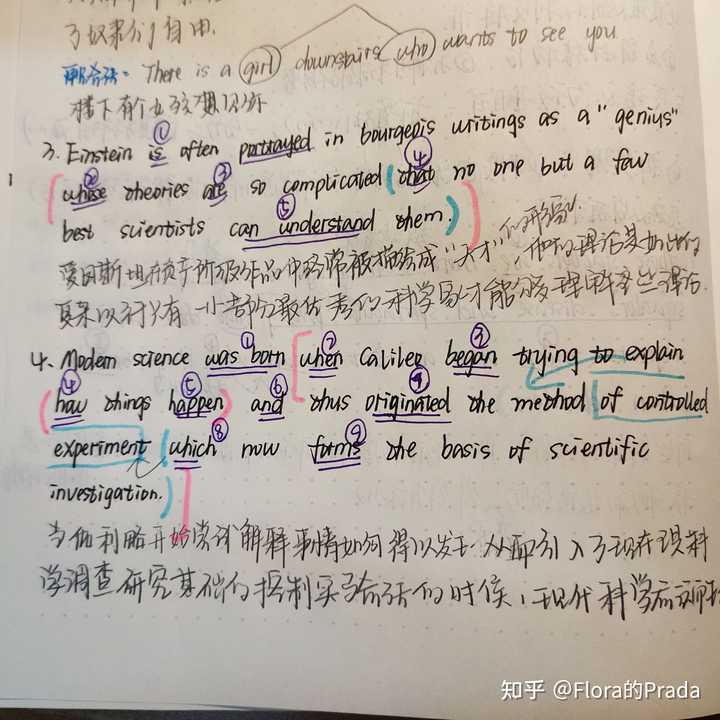 了奴隶们自由.
There is a girl downstairs who wants to see you
楼下有个女孩想见你
①
3. Einstein is often portrayed in bourgeois writings as a "genius"
② ③ ④
whose theories are so complicated (that no one but a few
⑤
best scientists can understand them.)
爱因斯坦在资产阶级作品中经常被描绘成"天才"的形象,他的理论是如此的
复杂以致只有一小部分最优秀的科学家才能够理解这些理论.
① ② ③
4. Modern science was born when Galileo began trying to explain
④ ⑤ ⑥ ⑦
how things happen and thus originated the method of controlled
⑧ ⑨
experiment which now forms the basis of scientific
investigation.
当伽利略开始尝试解释事情如何得以发生从而引入了现在现科
学调查研究基础的控制实验方法的时候,现代科学
知乎 @Flora的Prada